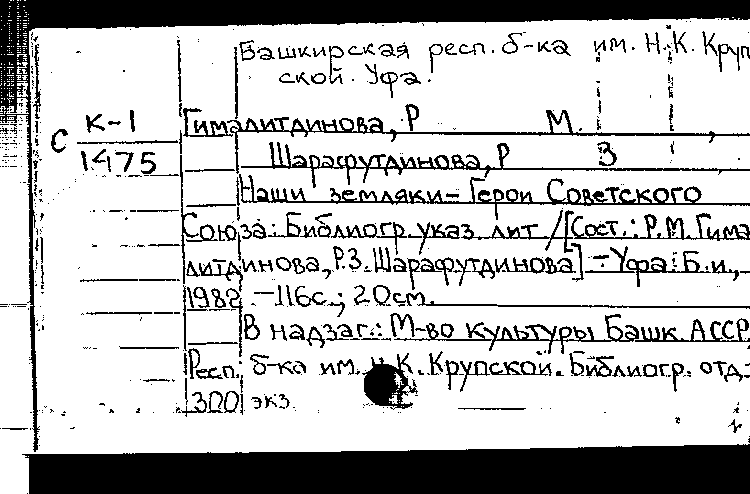 Башкирская респ. б-ка им. Н.К. Круп
ской. Уфа.
С К-1
1475
Гималитдинова, Р М.,
Шарафутдинова, Р З
Наши земляки - Герои Советского
Союза: Библиогр. указ. лит / [Сост.: Р.М. Гима
литдинова, Р.З. Шарафутдинова] - Уфа: Б.и.,
1982. -116с.; 20см.
В надзаг.: М-во культуры Башк. АССР,
Респ. б-ка им. Н.К. Крупской. Библиогр. отд.
300 экз